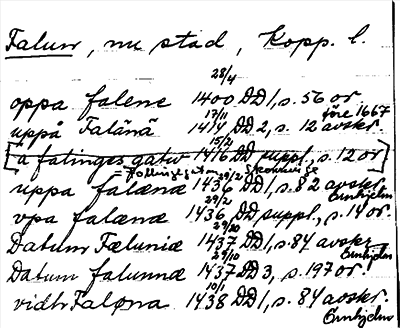 Falun, nu stad, Kopp. l.
28/4
oppa falene 1400 DD 1, s. 56 or
17/11 före 1667
uppå Falänä 1414 DD 2, s. 12 avskr.
15/2
[å falinges gatu 1416 DD suppl., s. 12 or]
29/2
uppa falænæ 1436 DD 1, s. 82 avskr.
29/2 Örnhjelm
vpa falænæ 1436 DD suppl., s. 14 or.
29/10
Datum Fæluniæ 1437 DD 1, s. 84 avskr.
29/10 Örnhjelm
Datum falunnæ 1437 DD 3, s. 197 or.
10/1
vidh Faløna 1438 DD 1, s. 84 avskr.
Örnhjelm